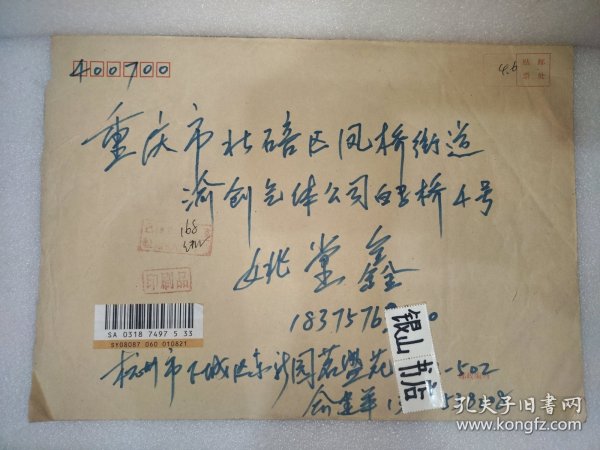 400700
贴 邮
票 处
重庆市北碚区凤桥街道
渝创气体公司白云桥4号
168
姚堂鑫
印刷品
1837576
银山书店
SA 0318 7497 5 33
SY08087 060 010821
杭州市下城区东新园茗盛花 -502
俞建华
孔夫子旧书网
www.kongfz.com